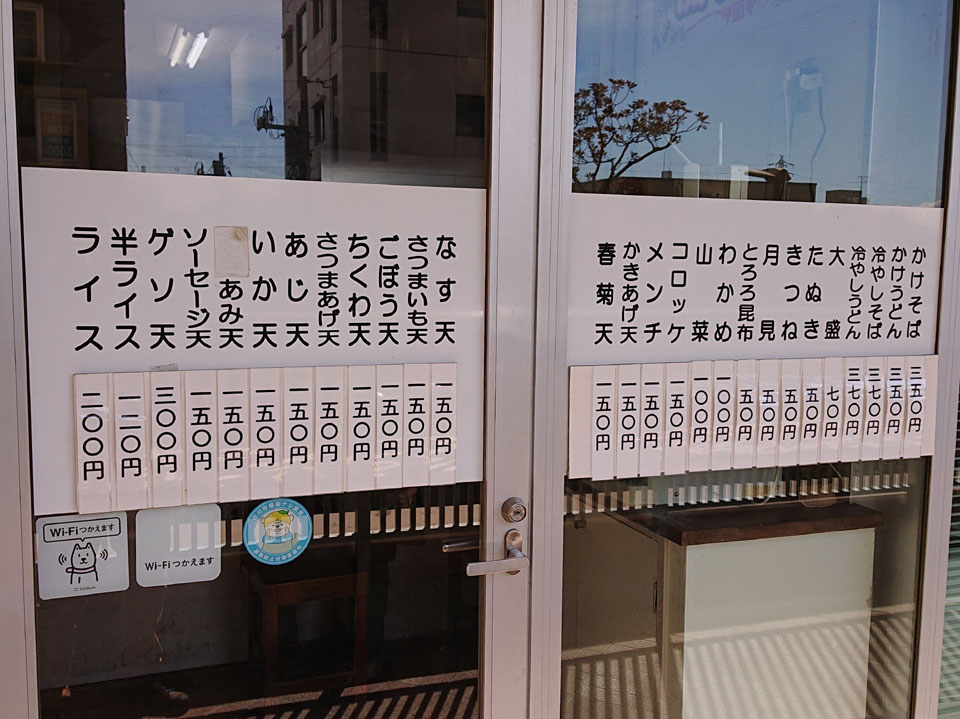 かけそば 三五〇円
かけうどん 三五〇円
冷やしそば 三七〇円
冷やしうどん 三七〇円
大盛 七〇円
たぬき 五〇円
きつね 五〇円
月見 五〇円
とろろ昆布 五〇円
わかめ 一〇〇円
山菜 一〇〇円
コロッケ 一五〇円
メンチ 一五〇円
かきあげ天 一五〇円
春菊天 一五〇円
なす天 一五〇円
さつまいも天 一五〇円
ごぼう天 一五〇円
ちくわ天 一五〇円
さつまあげ天 一五〇円
あじ天 一五〇円
いか天 一五〇円
あみ天 一五〇円
ソーセージ天 一五〇円
ゲソ天 三〇〇円
半ライス 一二〇円
ライス 二〇〇円
Wi-Fiつかえます
SoftBank
Wi-Fiつかえます